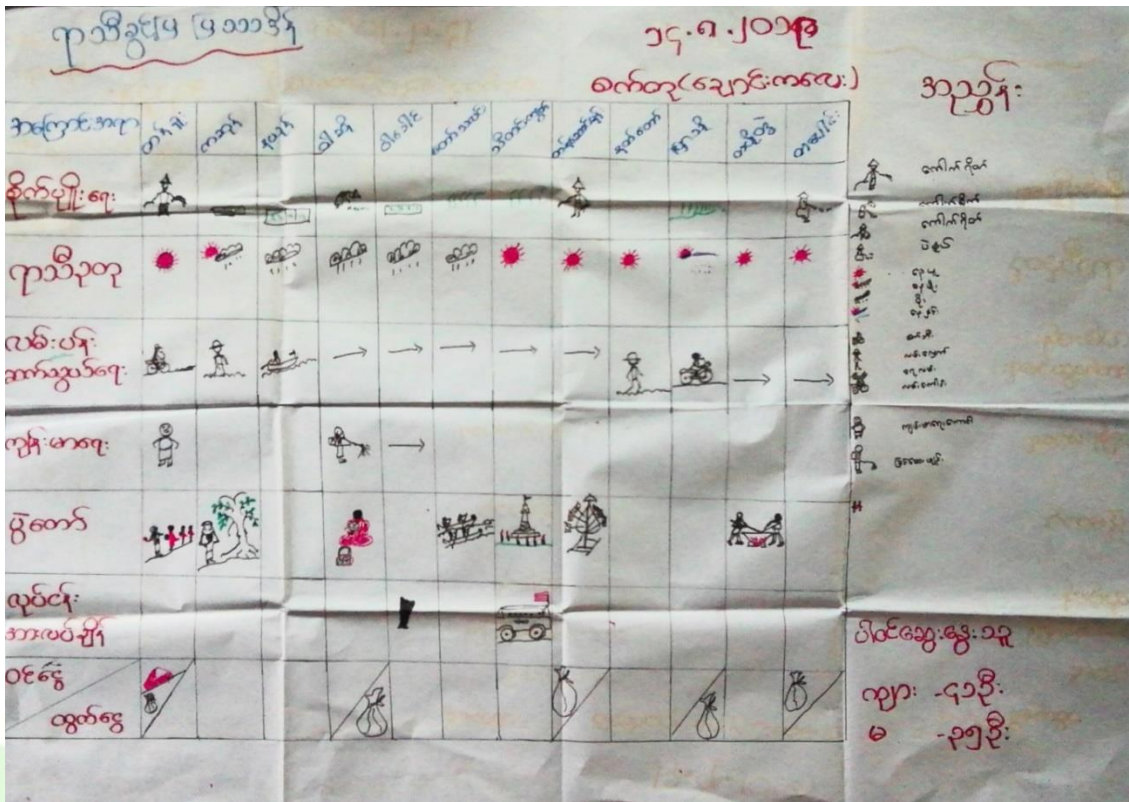 ရာသီခွင်ပြ ပြက္ခဒိန်
၁၄.၈.၂၀၁၅
စက်တု(ချောင်းကလေး)
အညွှန်း
အကြောင်းအရာ
တန်ခူး
ကဆုန်
နယုန်
ဝါဆို
ဝါခေါင်
တော်သလင်း
သီတင်းကျွတ်
တန်ဆောင်မုန်း
နတ်တော်
ပြာသို
တပို့တွဲ
တပေါင်း
စိုက်ပျိုးရေး
ရာသီဥတု
လမ်းပန်း
ဆက်သွယ်ရေး
ကျန်းမာရေး
ပွဲတော်
လုပ်ငန်း
အားလပ်ချိန်
ဝင်ငွေ
ထွက်ငွေ
ကောက်ရိတ်
ကောက်စိုက်
ကောက်ရိတ်
ပါဝင်ဆွေးနွေးသူ
ကျား - ၄၁ဦး
မ - ၃၅ဦး